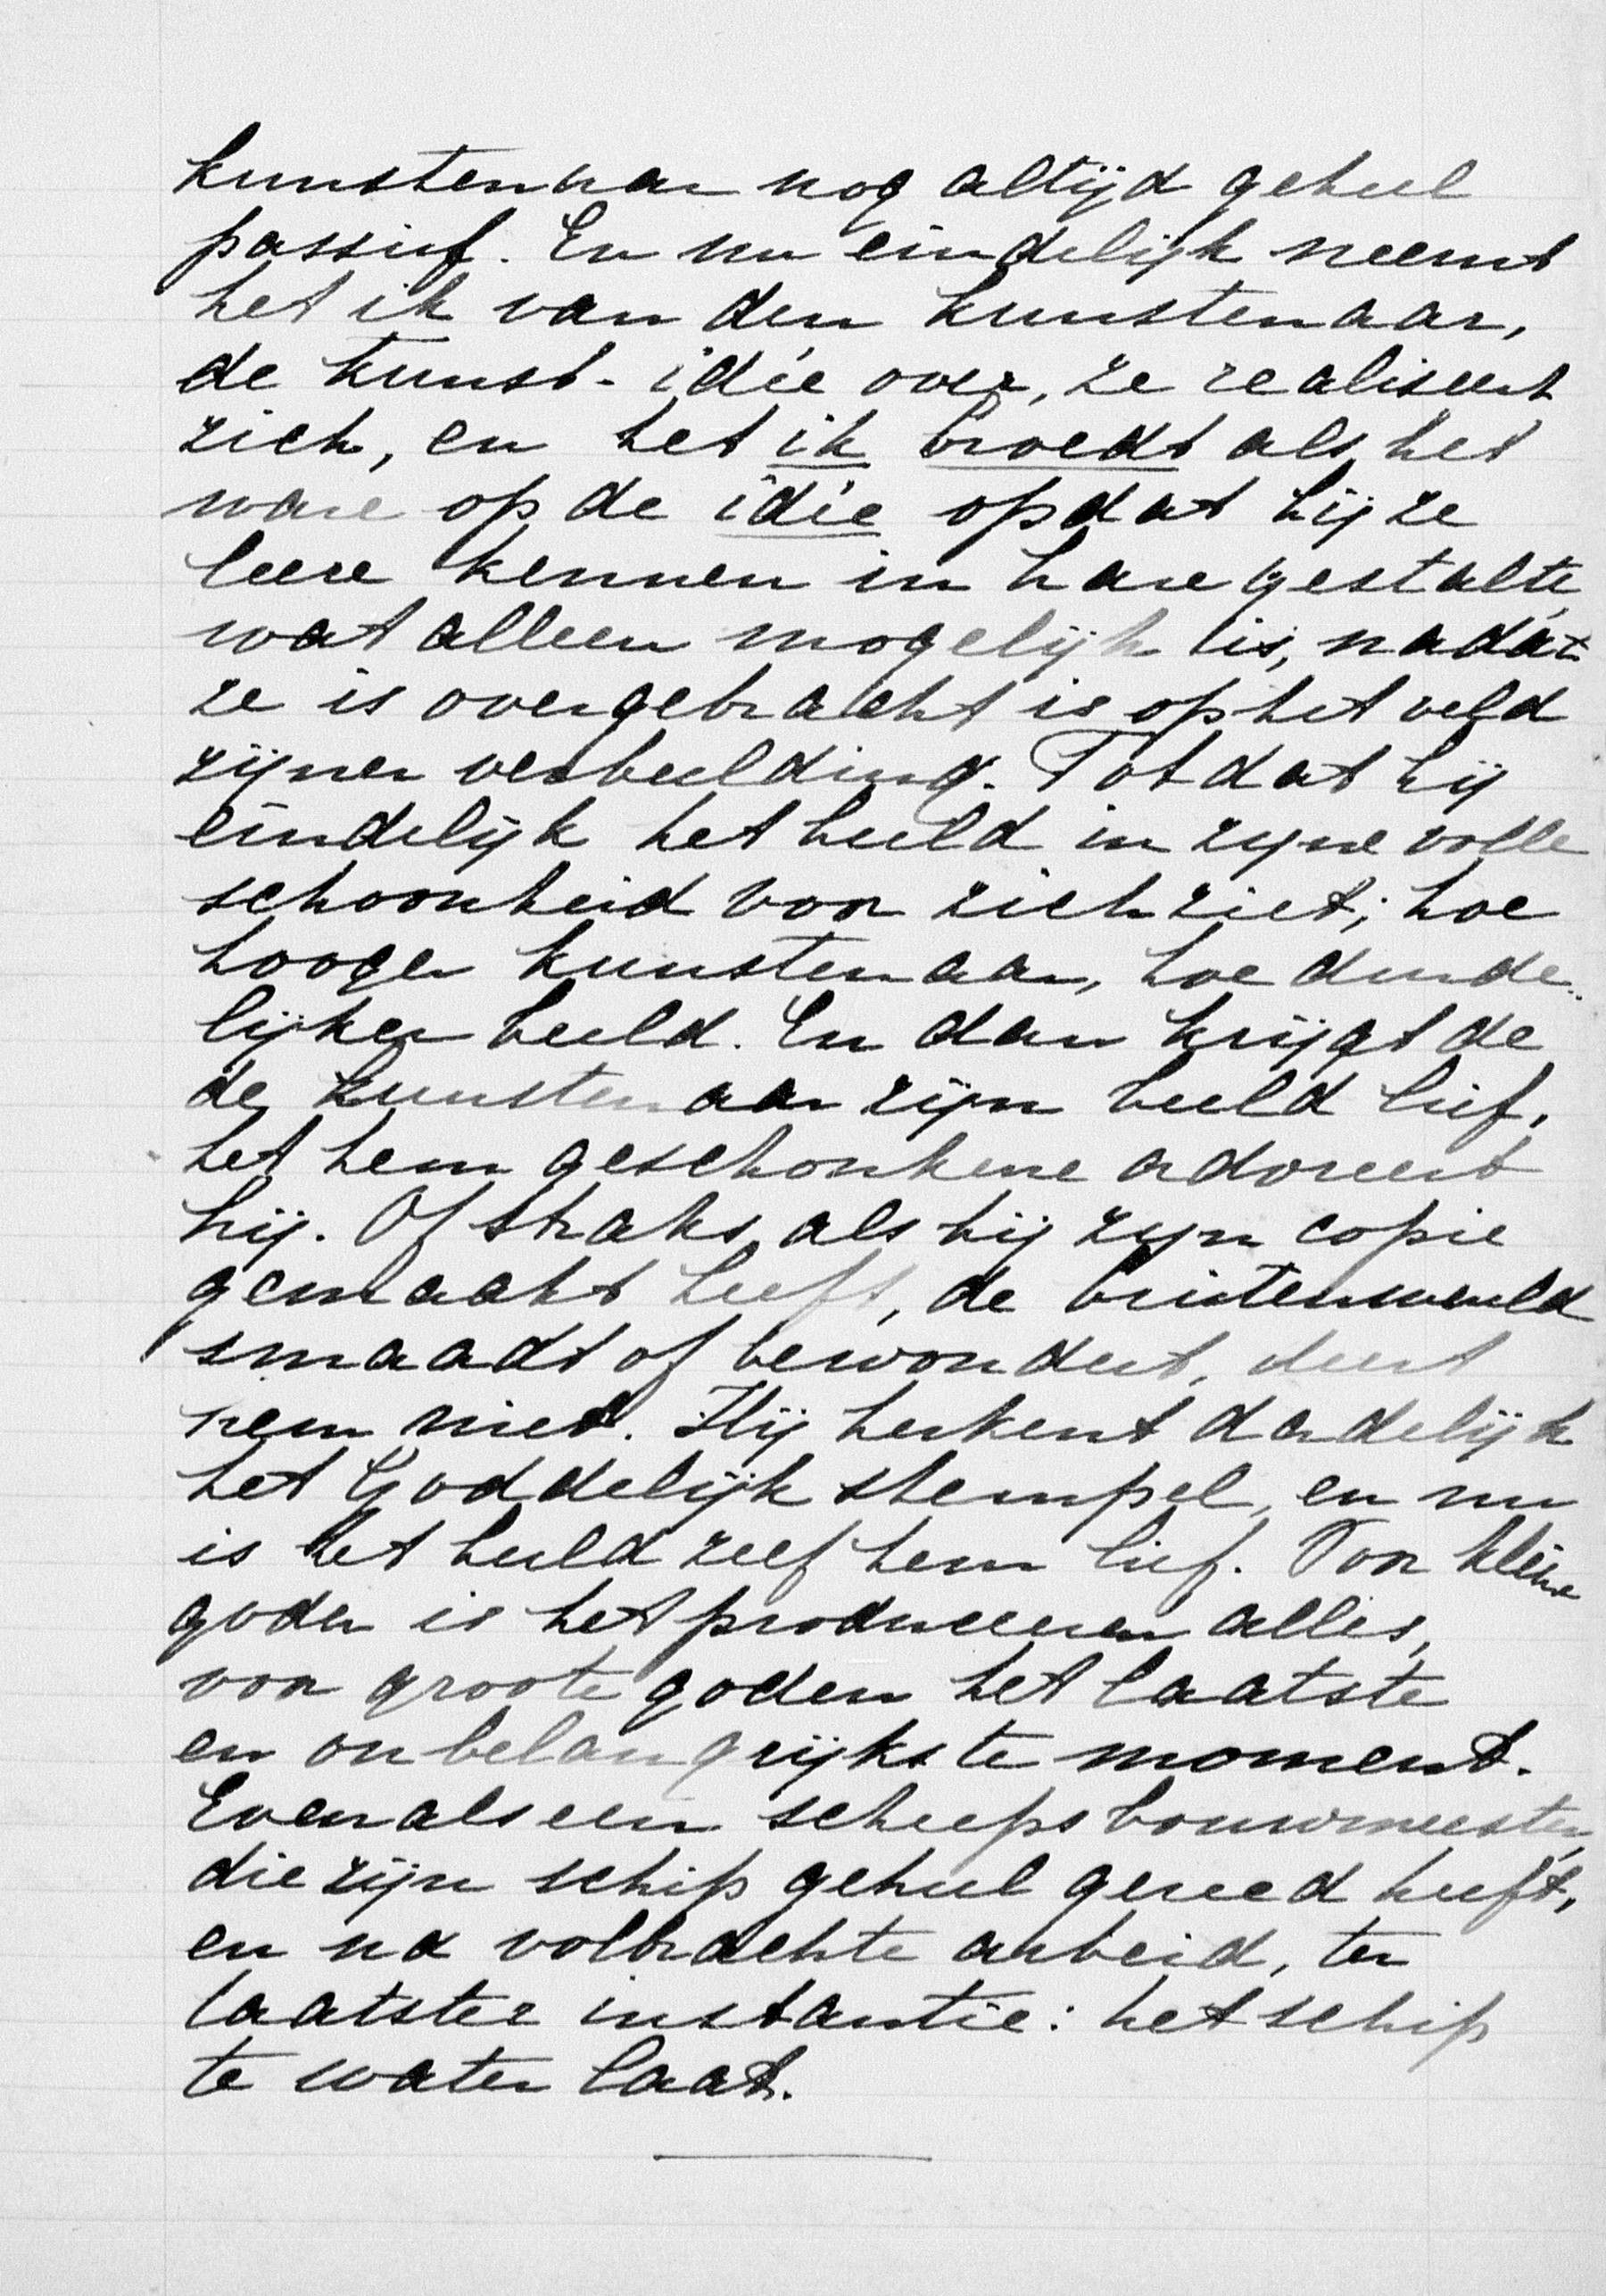 kunstenaar nog altijd geheel
passief. En nu eindelijk neemt
het ik van den kunstenaar,
de kunst-idée over, ze realiseert
zich, en het ik broedt als het
ware op de idée opdat hij ze
leere kennen in hare gestalte,
wat alleen mogelijk is, nadat
ze is overgebracht is op het veld
zijner verbeelding. Totdat hij
eindelijk het beeld in zijne volle
schoonheid voor zich ziet; hoe
hooger kunstenaar, hoe duide-
lijker beeld. En dan krijgt de
de kunstenaar zijn beeld lief,
het hem geschonkene adoreert
hij. Of straks, als hij zijn copie
gemaakt heeft, de buitenwereld
smaadt of bewondert, deert
hem niet. Hij herkent dadelijk
het Goddelijk stempel, en nu
is het beeld zelf hem lief. Voor kleine
goden is het produceeren alles,
voor groote goden het laatste
en onbelangrijkste moment.
Evenals een scheepsbouwmeester,
die zijn schip geheel gereed heeft,
en na volbrachte arbeid, ter
laatster instantie: het schip
te water laat.